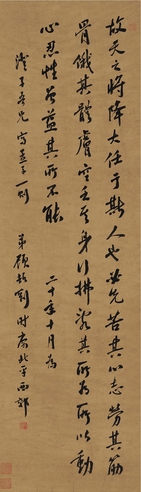 故天之將降大任于斯人也必先苦其心志勞其筋
骨餓其體膚空乏其身行拂亂其所為所以動
心忍性曾益其所不能
二十年十月為
濩子吾兄寫孟子一則
弟顧頡剛時寓北平西郊